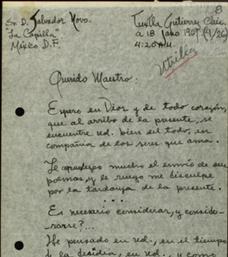 Sr. D. Salvador Novo.
"La Capilla"
México D.F.
Tuxtla Gutiérrez Chis.
a 18
4:20 A.M.
8
Querido Maestro:
Espero en Dios y de todo corazón,
que al arribo de la presente, se
encuentre ud. bien del todo, en
compañía de los seres que ama.
Le agradezco mucho el envío de sus
poemas, y le ruego me disculpe
por la tardanza de la presente.
. . .
Es necesario considerar, y conside-
rarse?...
He pensado en ud., en el tiempo
y la desidia, en ud., y como